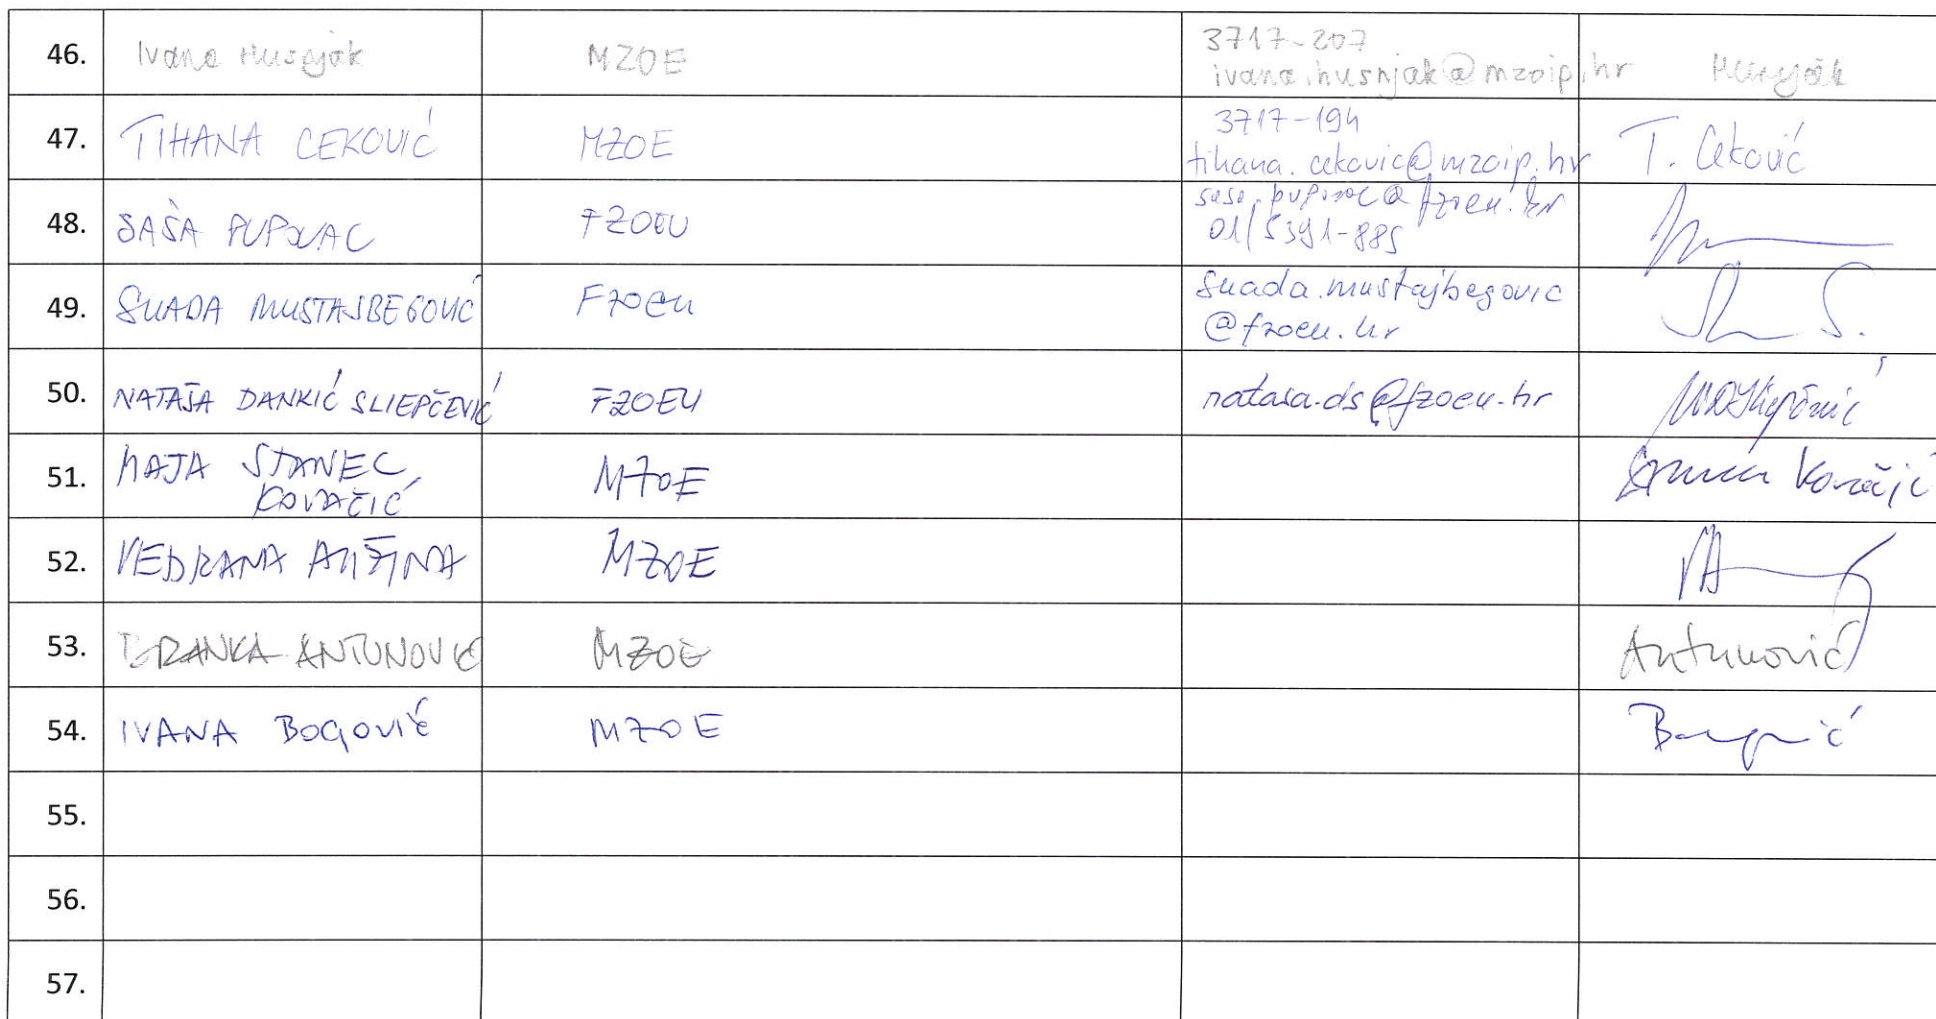 46. Ivana Husnjak MZOE 3717-207
ivana.husnjak@mzoip.hr Husnjak
47. TIHANA CEKOVIĆ MZOE 3717-194
tihana.cekovic@mzoip.hr T. Ceković
48. SAŠA PUPOVAC FZOEU sasa.pupovac@fzoeu.hr
01/5391-885
49. SUADA MUSTAJBEGOVIĆ FZOEU suada.mustajbegovic
@fzoeu.hr
50. NATAŠA DANKIĆ SLIEPČEVIĆ FZOEU natasa.ds@fzoeu.hr
51. MAJA STANEC MZOE Kovačić
KOVAČIĆ
52. VEDRANA MZOE
53. BRANKA ANTUNOVIĆ MZOE Antunović
54. IVANA BOGOVIĆ MZOE Bogović
55.
56.
57.